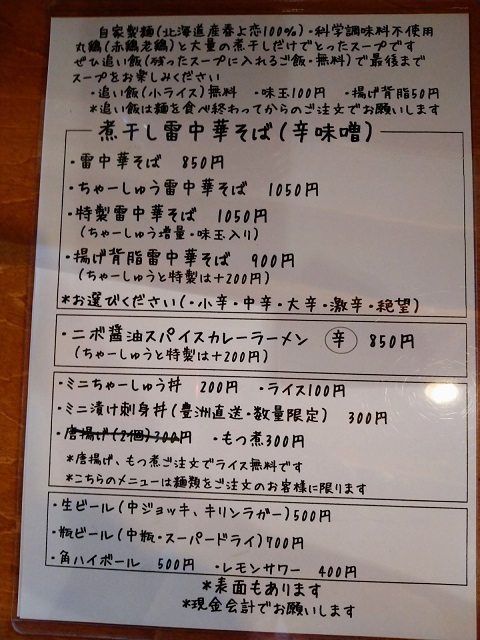 自家製麺(北海道産春よ恋100%)・科学調味料不使用
丸鶏(赤鶏老鶏)と大量の煮干しだけでとったスープです
ぜひ追い飯(残ったスープに入れるご飯・無料)で最後まで
スープをお楽しみください
・追い飯(小ライス)無料 ・味玉100円 ・揚げ背脂50円
*追い飯は麺を食べ終わってからのご注文でお願いします
煮干し雷中華そば(辛味噌)
・雷中華そば 850円
・ちゃーしゅう雷中華そば 1050円
・特製雷中華そば 1050円
(ちゃーしゅう増量・味玉入り)
・揚げ背脂雷中華そば 900円
(ちゃーしゅうと特製は+200円)
*お選びください(・小辛・中辛・大辛・激辛・絶望)
・ニボ醤油スパイスカレーラーメン 辛 850円
(ちゃーしゅうと特製は+200円)
・ミニちゃーしゅう丼 200円 ・ライス100円
・ミニ漬け刺身丼(豊洲直送・数量限定) 300円
・唐揚げ(2個)300円 ・もつ煮300円
*唐揚げ、もつ煮ご注文でライス無料です
*こちらのメニューは麺類をご注文のお客様に限ります
・生ビール(中ジョッキ、キリンラガー)500円
・瓶ビール(中瓶・スーパードライ)700円
・角ハイボール 500円 ・レモンサワー 400円
*表面もあります
*現金会計でお願いします